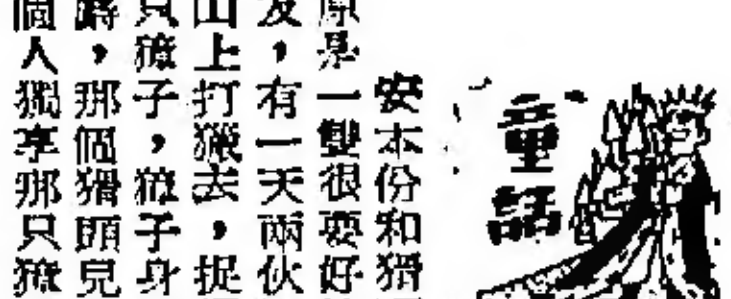 童話
安本份和猾
原是一雙很要好
友，有一天兩伙
山上打獵去，捉
只獐子，獐子身
那個猾頭兒
個人獨享那只獐